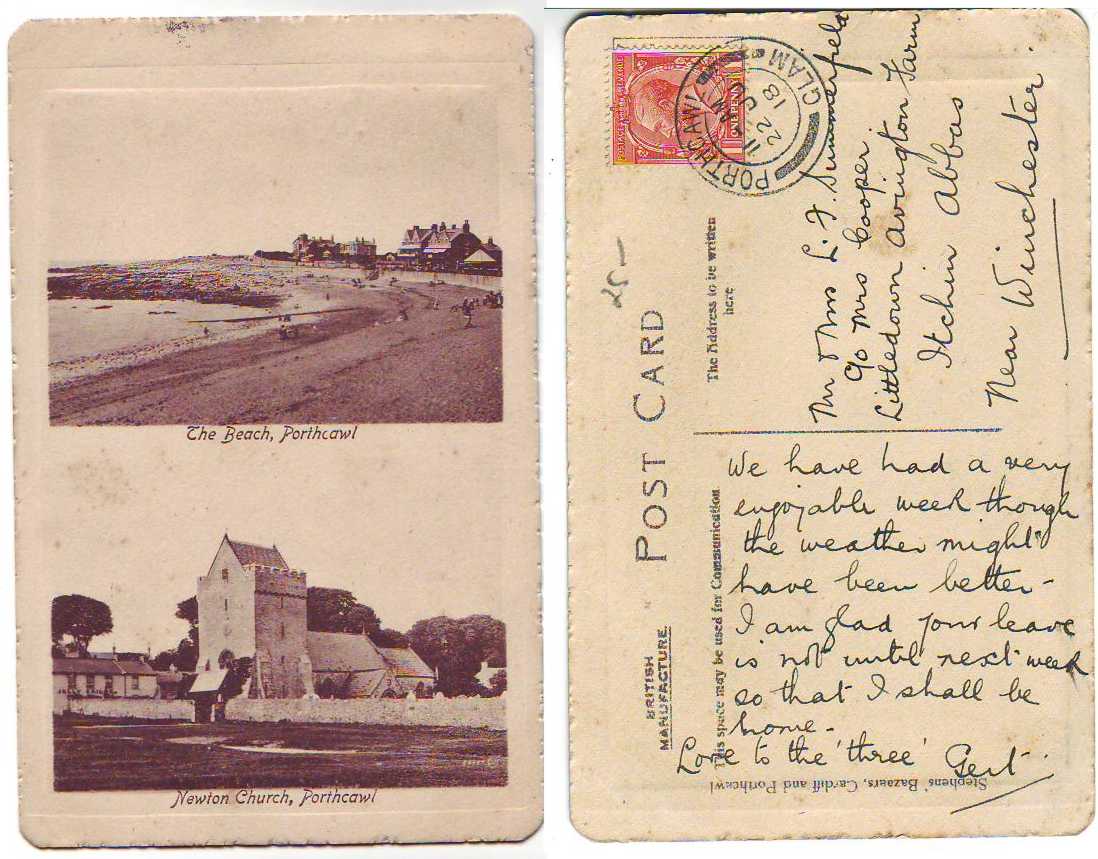 The Beach, Porthcawl
Newton Church, Porthcawl
POST CARD
The Address to be written
here
This space may be used for Communication
BRITISH
MANUFACTURE
Stephens' Bazaars, Cardiff and Porthcawl
POSTAGE REVENUE
ONE PENNY
PORTHCAWL
GLAM
11
AM
22
18
25 –
Mr & Mrs L. F. Summerfield
c/o Mrs Cooper
Littledown Avington Farm
Itchin Abbas
Near Winchester.
We have had a very
enjoyable week though
the weather might
have been better –
I am glad your leave
is not until next week
so that I shall be
home –
Love to the 'three' Gert.